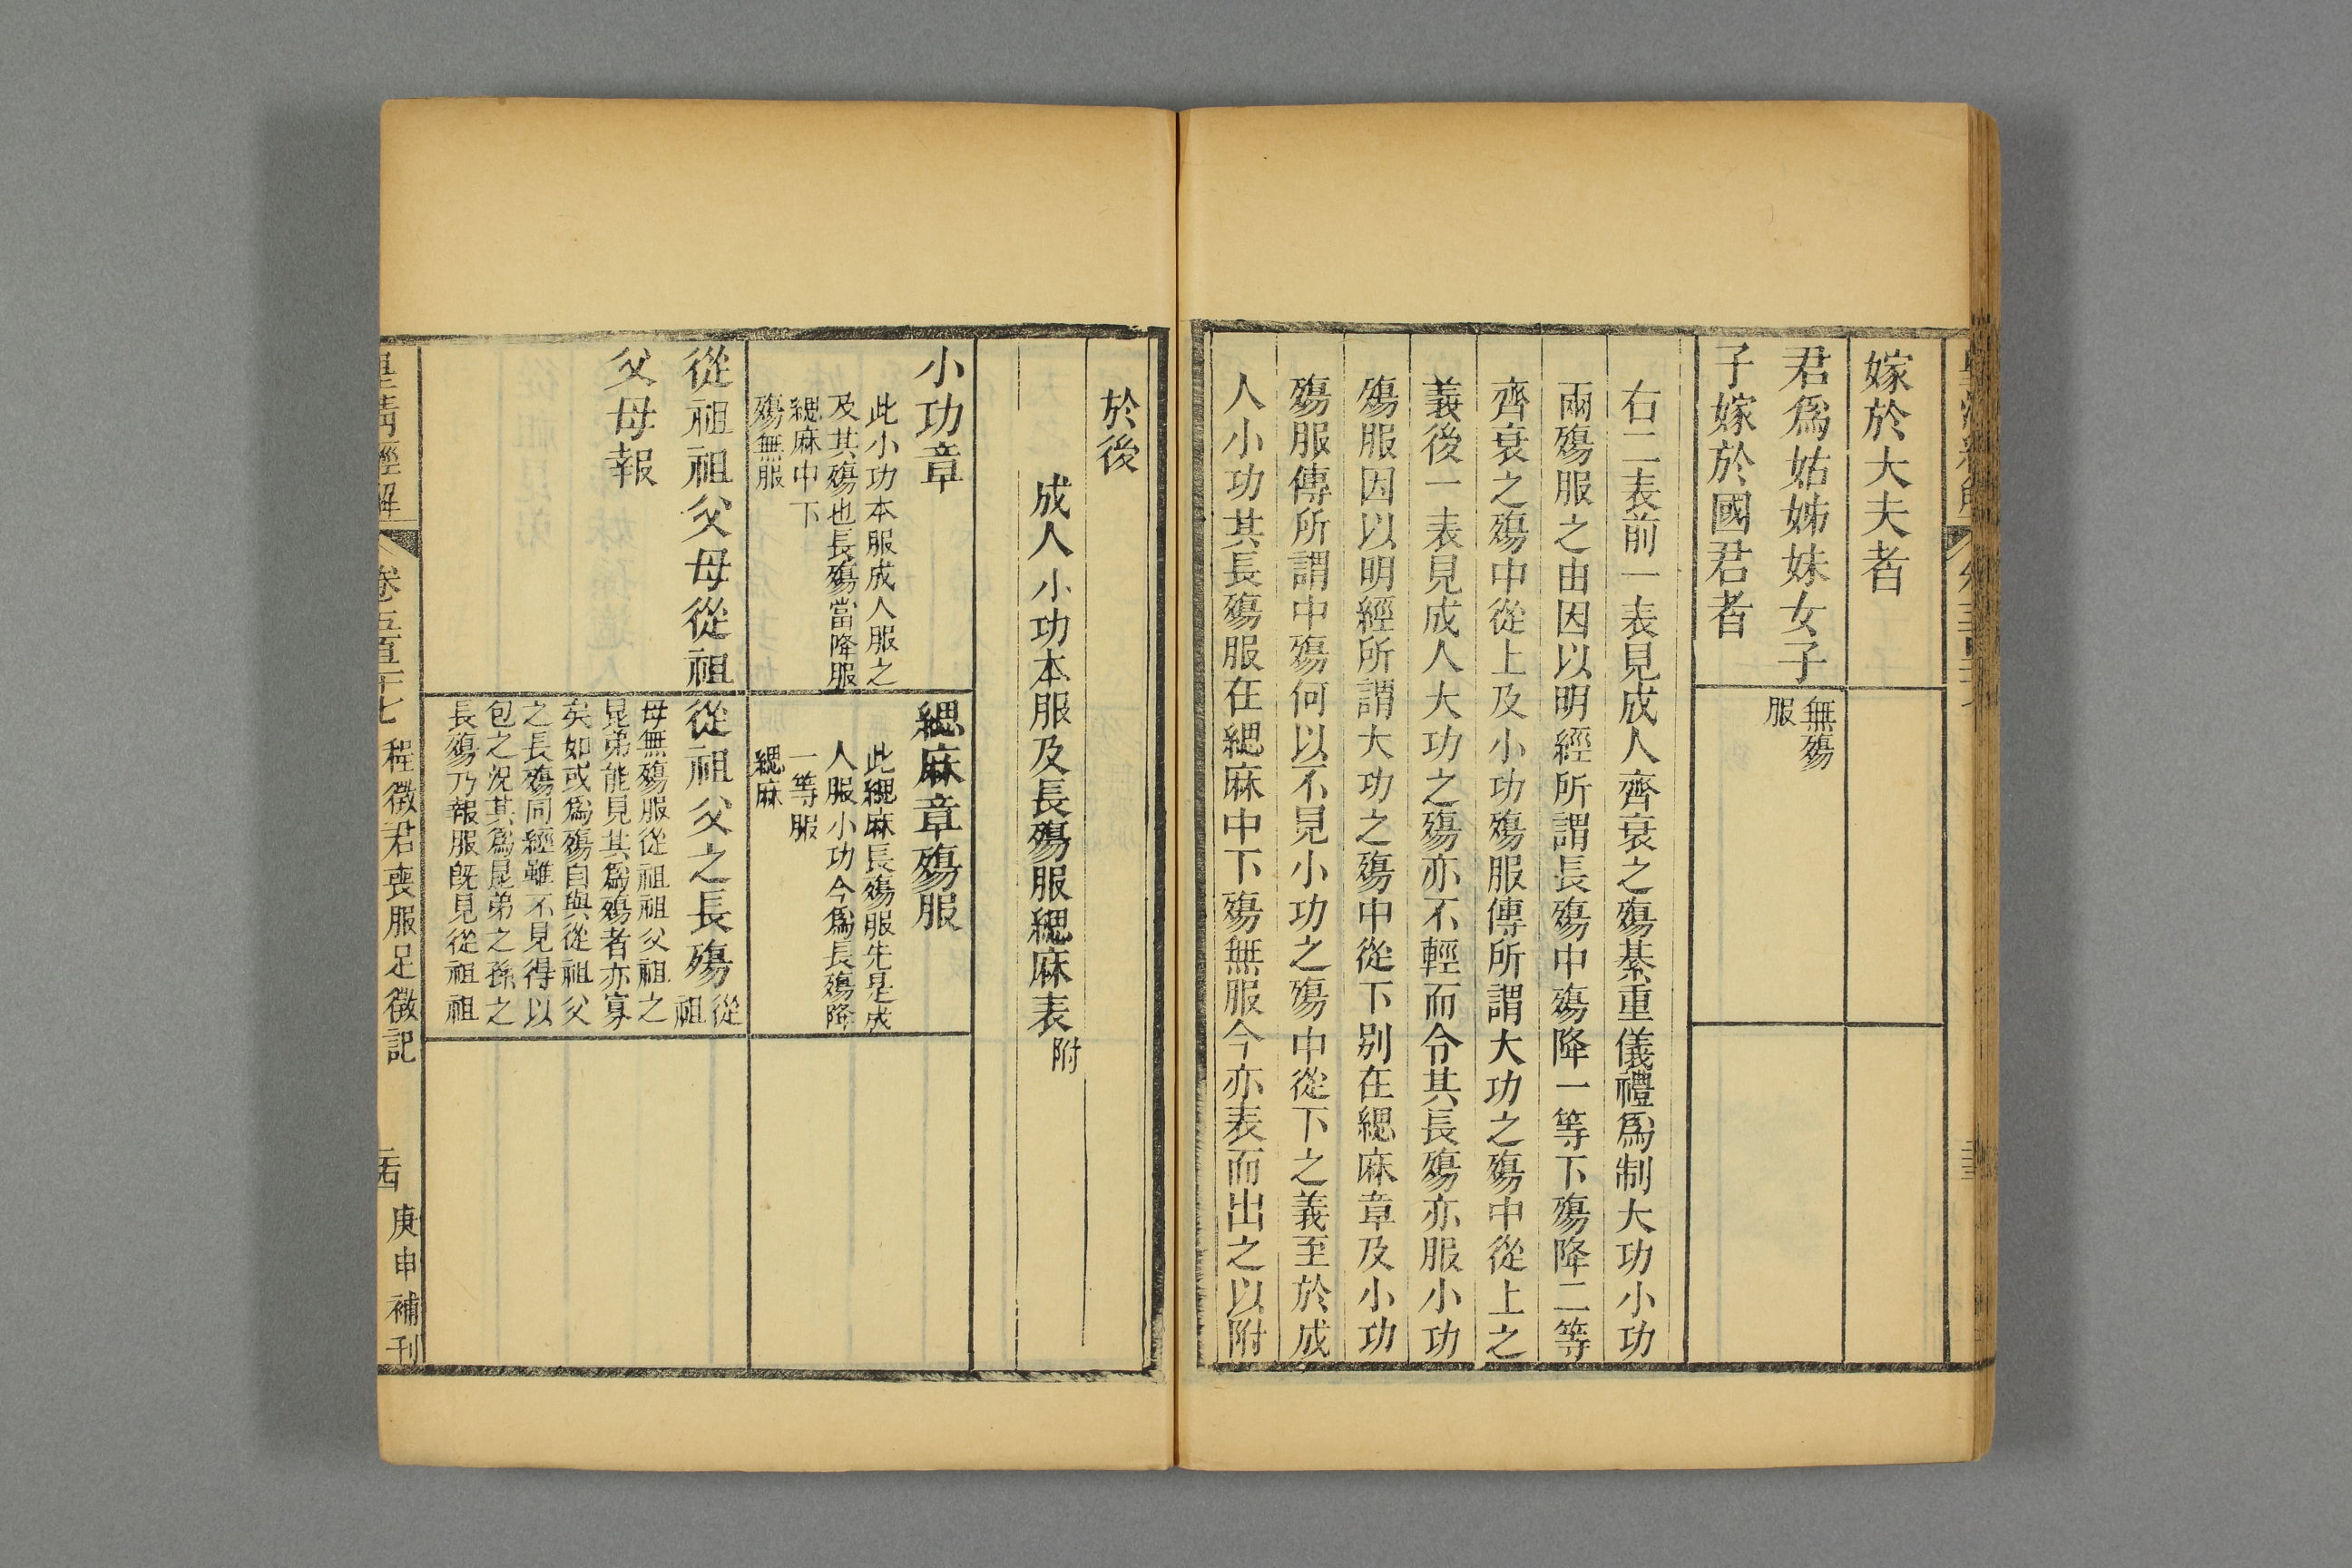 嫁於大夫者
君爲姑姊妹女子
子嫁於國君者
無殤
服
右二表前一表見成人齊衰之殤綦重儀禮爲制大功小功
兩殤服之由因以明經所謂長殤中殤降一等下殤降二等
齊衰之殤中從上及小功殤服傳所謂大功之殤中從上之
義後一表見成人大功之殤亦不輕而令其長殤亦服小功
殤服因以明經所謂大功之殤中從下别在緦麻章及小功
殤服傳所謂中殤何以不見小功之殤中從下之義至於成
人小功其長殤服在緦麻中下殤無服今亦表而出之以附
於後
成人小功本服及長殤服緦麻表附
小功章
此小功本服成人服之
及其殤也長殤當降服
緦麻中下
殤無服
緦麻章殤服
此緦麻長殤服先是成
人服小功今爲長殤降
一等服
緦麻
從祖祖父母從祖
父母報
從祖父之長殤從
祖
母無殤服從祖祖父祖之
昆弟能見其爲殤者亦寡
矣如或爲殤自與從祖父
之長殤同經雖不見得以
包之況其爲昆弟之孫之
長殤乃報服旣見從祖祖
皇清經解
卷五百二十七
程徵君喪服足徵記
庚申補刊